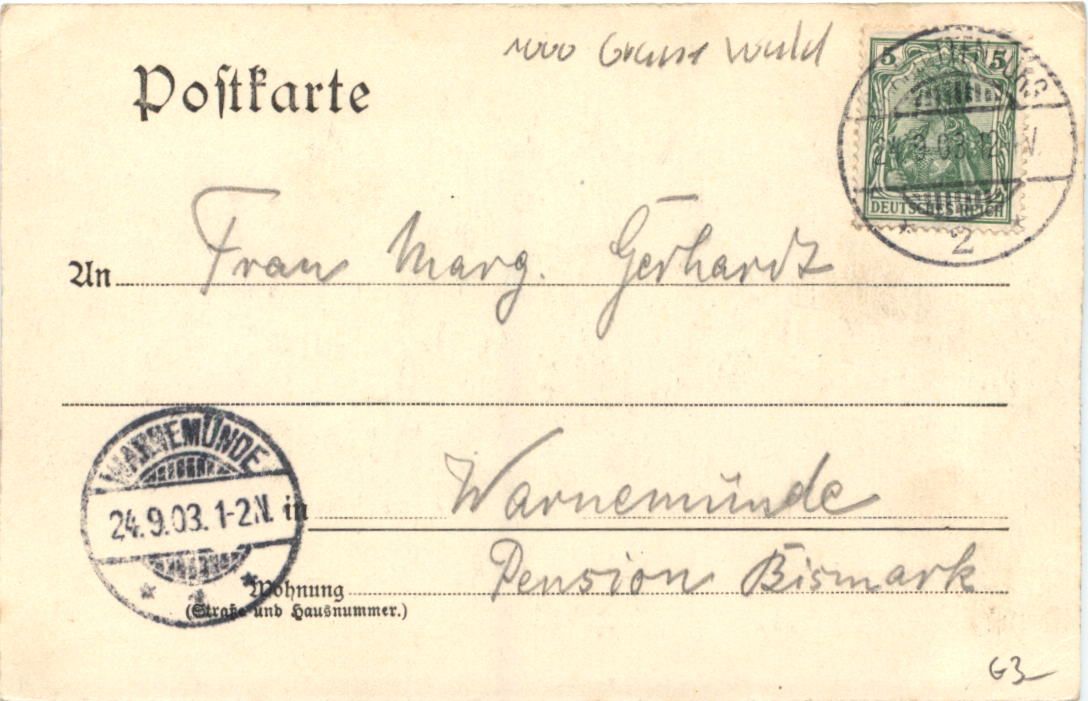 1000 Grunewald
5 5
Postkarte
24.9.03.12-1N.
DEUTSCHES REICH
2
An Frau Marg. Gerhardt
WARNEMÜNDE
24.9.03. 1-2.N.
in Warnemünde
1
Wohnung Pension Bismark
(Straße und Hausnummer.)
G3